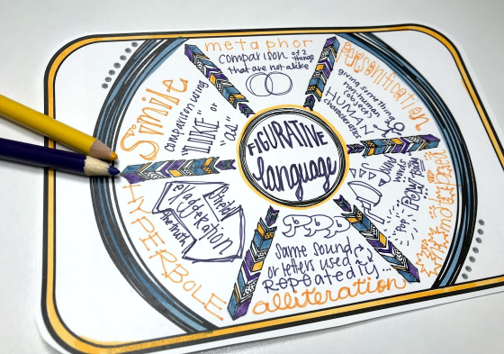 FIGURATIVE
language
metaphor
comparison of 2
things
that are not alike
personification
giving something
non-human
(object)
HUMAN
characteristics
Simile
comparison using
"LIKE" or
"as"
HYPERBOLE
exaggeration
Same sound
or letters used
REPEATEDLY...
alliteration